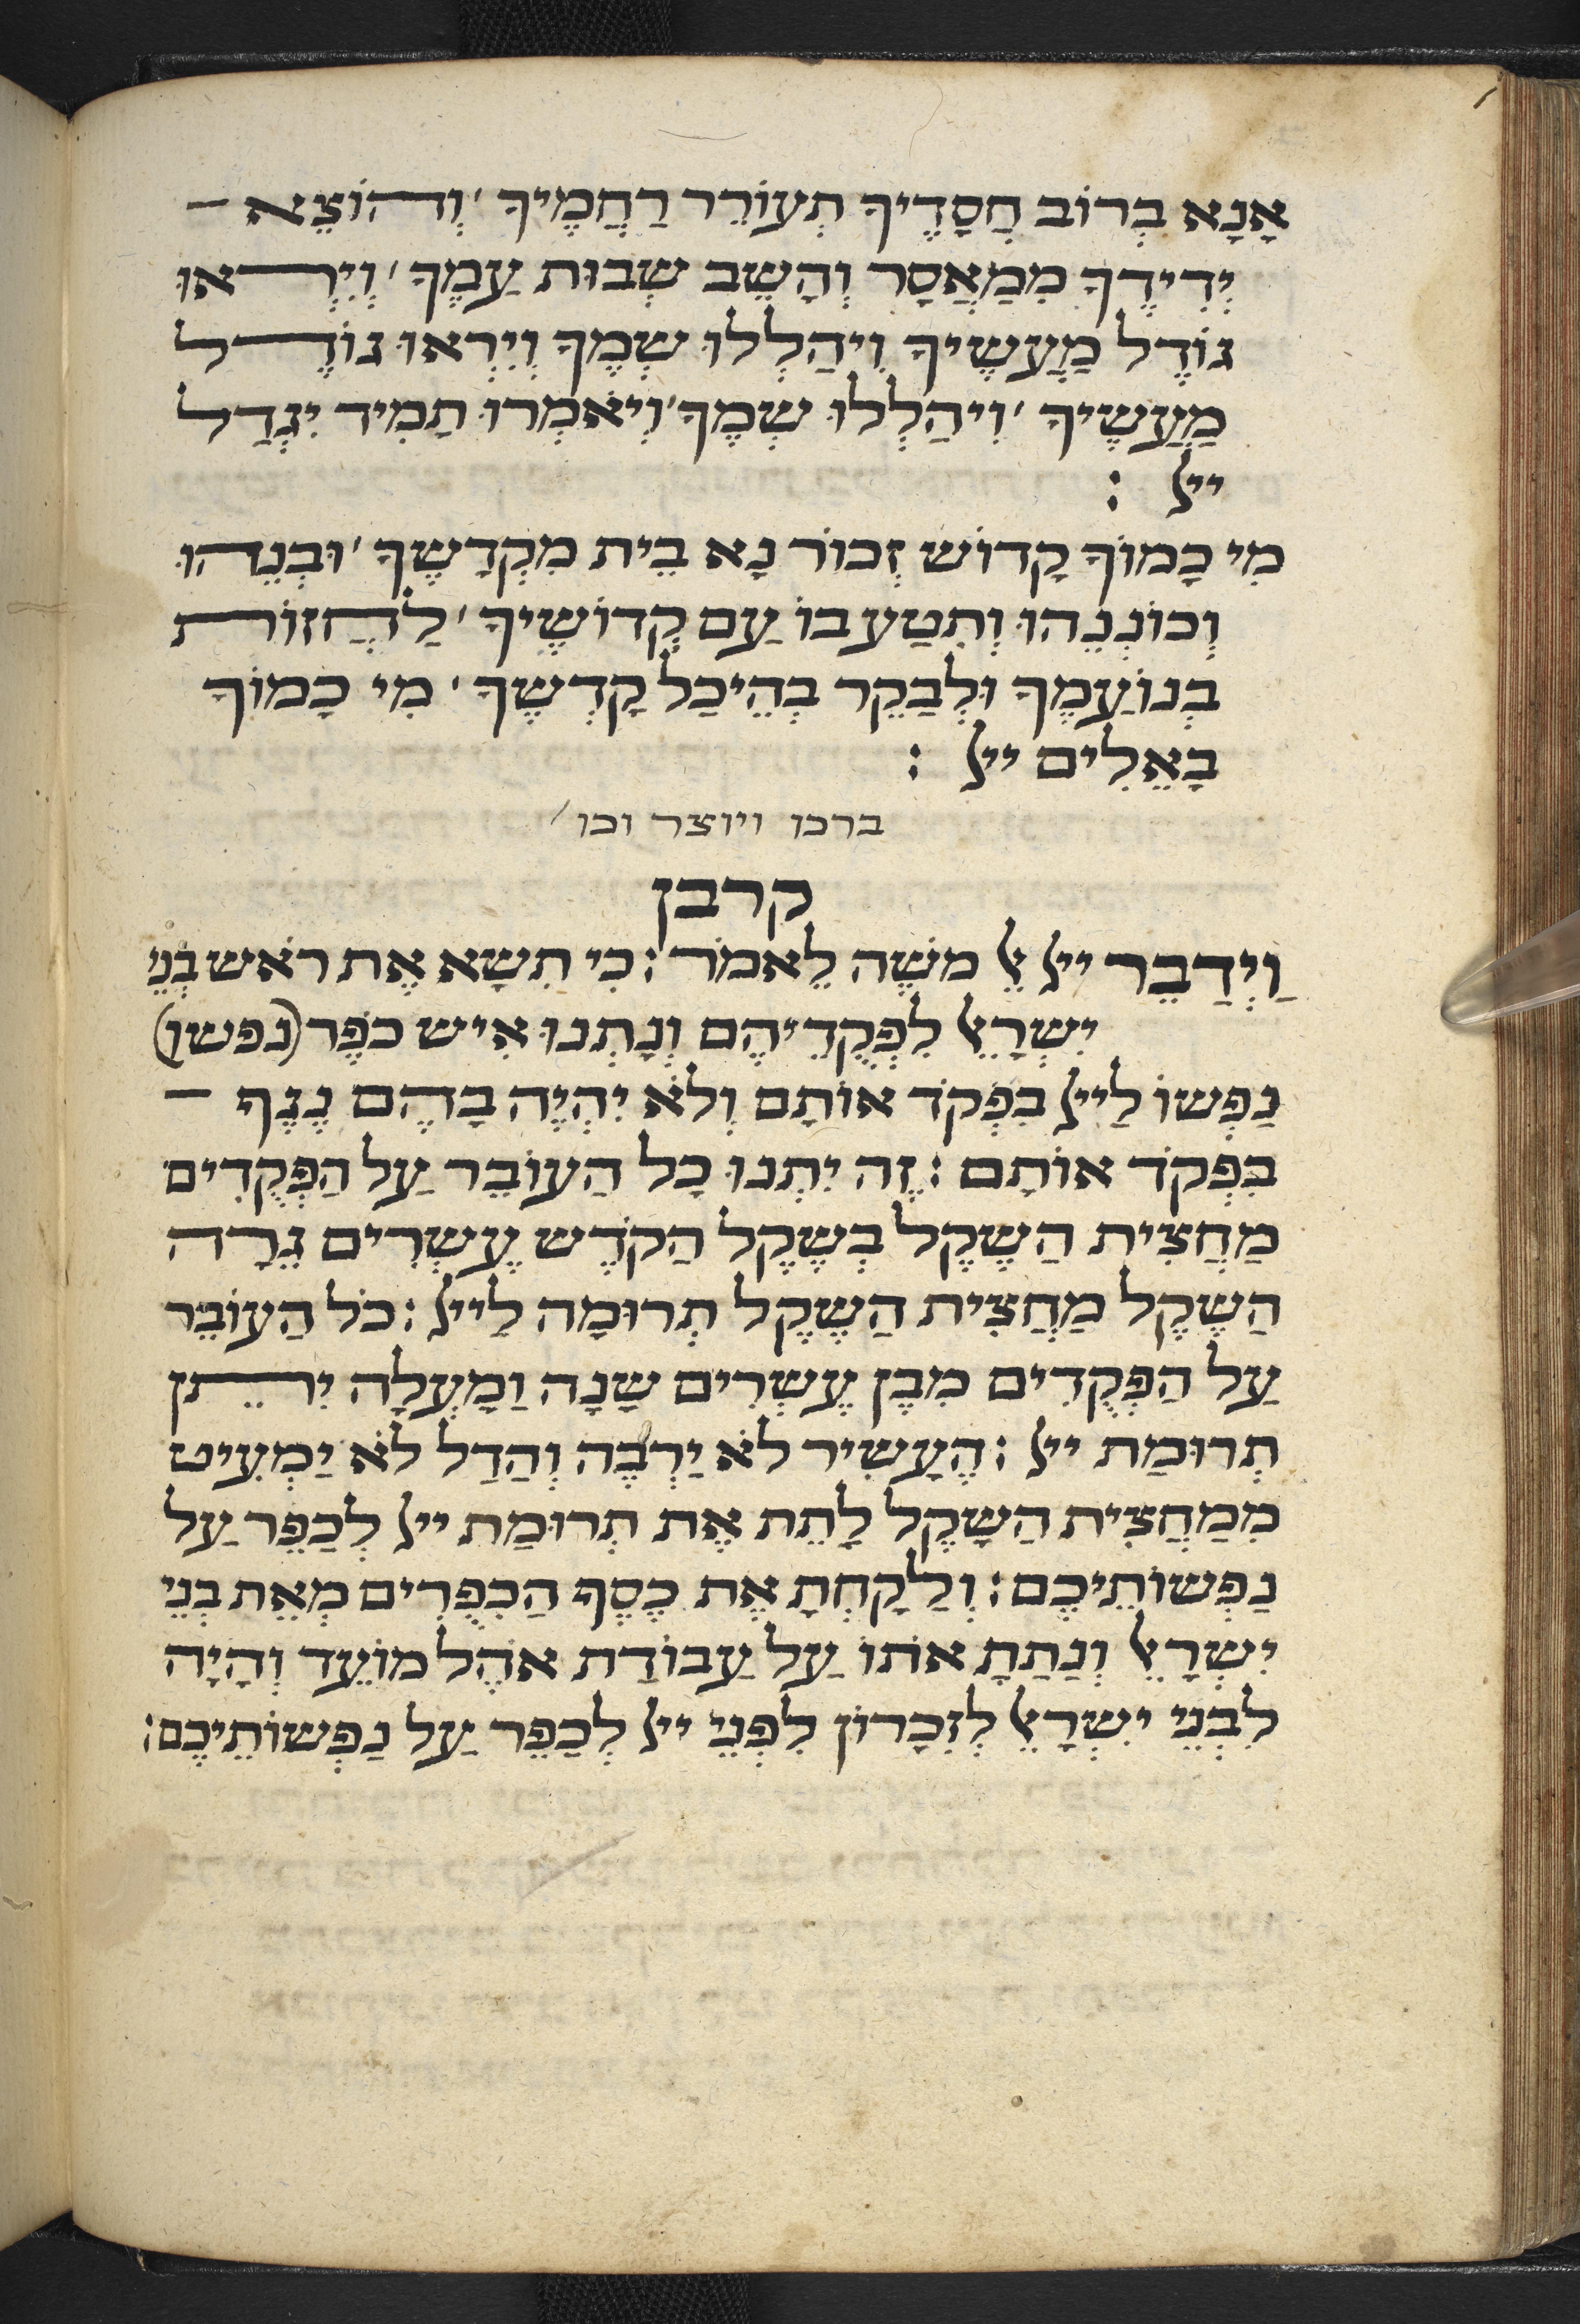 אָנָא בְרוֹב חֲסָדֶיךָ תְעוֹרֵר רַחֲמֶיךָ ׳ וְהוֹצֵא –
יְדִידֶךָ מִמַאֲסָר וְהָשֵב שְבוּת עַמֶךָ ׳ וְיִרְאוּ
גוֹדֶל מַעֲשֶיךָ וִיהַלְלוּ שְמֶךָ וְיִרְאוּ גוֹדֶל
מַעֲשֶיךָ ׳ וִיהַלְלוּ שְמֶךָ ׳ וְיֹאמְרוּ תָמִיד יִגְדַל
ייל :
מִי כָמוֹךָ קָדוֹש זְכוֹר נָא בֵית מִקְדָשֶךָ ׳ וּבְנֵהוּ
וְכוֹנְנֵהוּ וְתִטַע בוֹ עַם קְדוֹשֶיךָ ׳ לַחֲזוֹת
בְנוֹעַמֶךָ וּלְבַקֵר בְהֵיכַל קָדְשֶךָ ׳ מִי כָמוֹךָ
בָאֵלִים ייל :
ברכו ויוצר וכו׳
קרבן
וַיְדַבֵר ייל אֶל משֶה לֵאמֹר : כִי תִשָא אֶת רֹאש בְנֵי
יִשְרָאֵל לִפְקֻדֵיהֶם וְנָתְנוּ אִיש כֹפֶר (נפשו)
נַפְשוֹ לַייל בִפְקֹד אוֹתָם וְלֹא יִהְיֶה בָהֶם נֶגֶף –
בִפְקֹד אוֹתָם : זֶה יִתְנוּ כָל הַעוֹבֵר עַל הַפְקֻדִים
מַחֲצִית הַשֶקֶל בְשֶקֶל הַקֹדֶש עֶשְרִים גֵרָה
הַשֶקֶל מַחֲצִית הַשֶקֶל תְרוּמָה לַייל : כֹל הַעוֹבֵר
עַל הַפְקֻדִים מִבֶן עֶשְרִים שָנָה וָמָעְלָה יִתֵן
תְרוּמַת ייל : הֶעָשִיר לֹא יַרְבֶה וְהַדַל לֹא יַמְעִיט
מִמַחֲצִית הַשָקֶל לָתֵת אֶת תְרוּמַת ייל לְכַפֵר עַל
נַפְשוֹתֵיכֶם : וְלָקַחְתָ אֶת כֶסֶף הַכִפֻרִים מְאֵת בְנֵי
יִשְרָאֵל וְנָתַתָ אֹתוֹ עַל עַבוֹדַת אֹהֶל מוֹעֵד וְהָיָה
לִבְנֵי יִשְרָאֵל לְזִכָרוֹן לִפְנֵי ייל לְכַפֵר עַל נַפְשוֹתֵיכֶם :